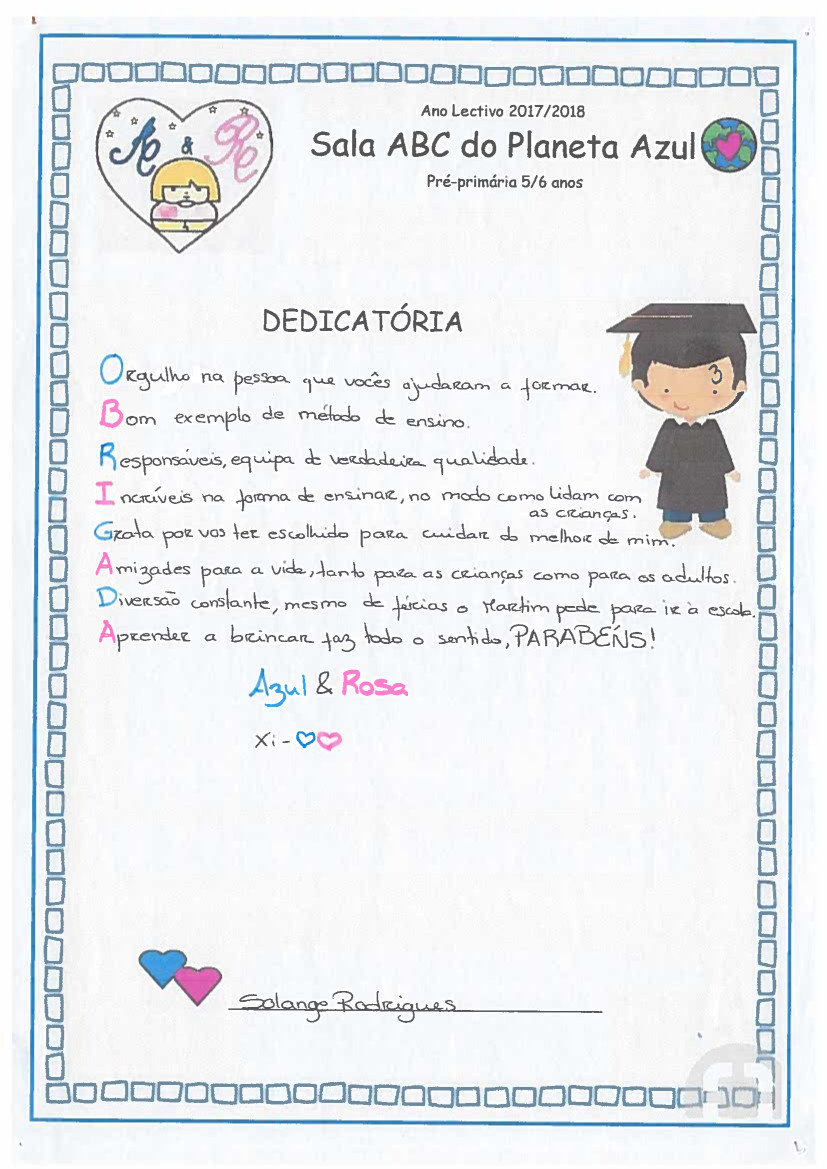 Ano Lectivo 2017/2018
Sala ABC do Planeta Azul
Pré-primária 5/6 anos
A & R
DEDICATÓRIA
Orgulho na pessoa que vocês ajudaram a formar.
Bom exemplo de método de ensino.
Responsáveis, equipa de verdadeira qualidade.
Incríveis na forma de ensinar, no modo como lidam com
as crianças.
Grata por vos ter escolhido para cuidar do melhor de mim.
Amizades para a vida, tanto para as crianças como para os adultos.
Diversão constante, mesmo de férias o Martim pede para ir à escola.
Aprender a brincar faz todo o sentido, PARABÉNS!
Azul & Rosa
Xi -
Solange Rodrigues